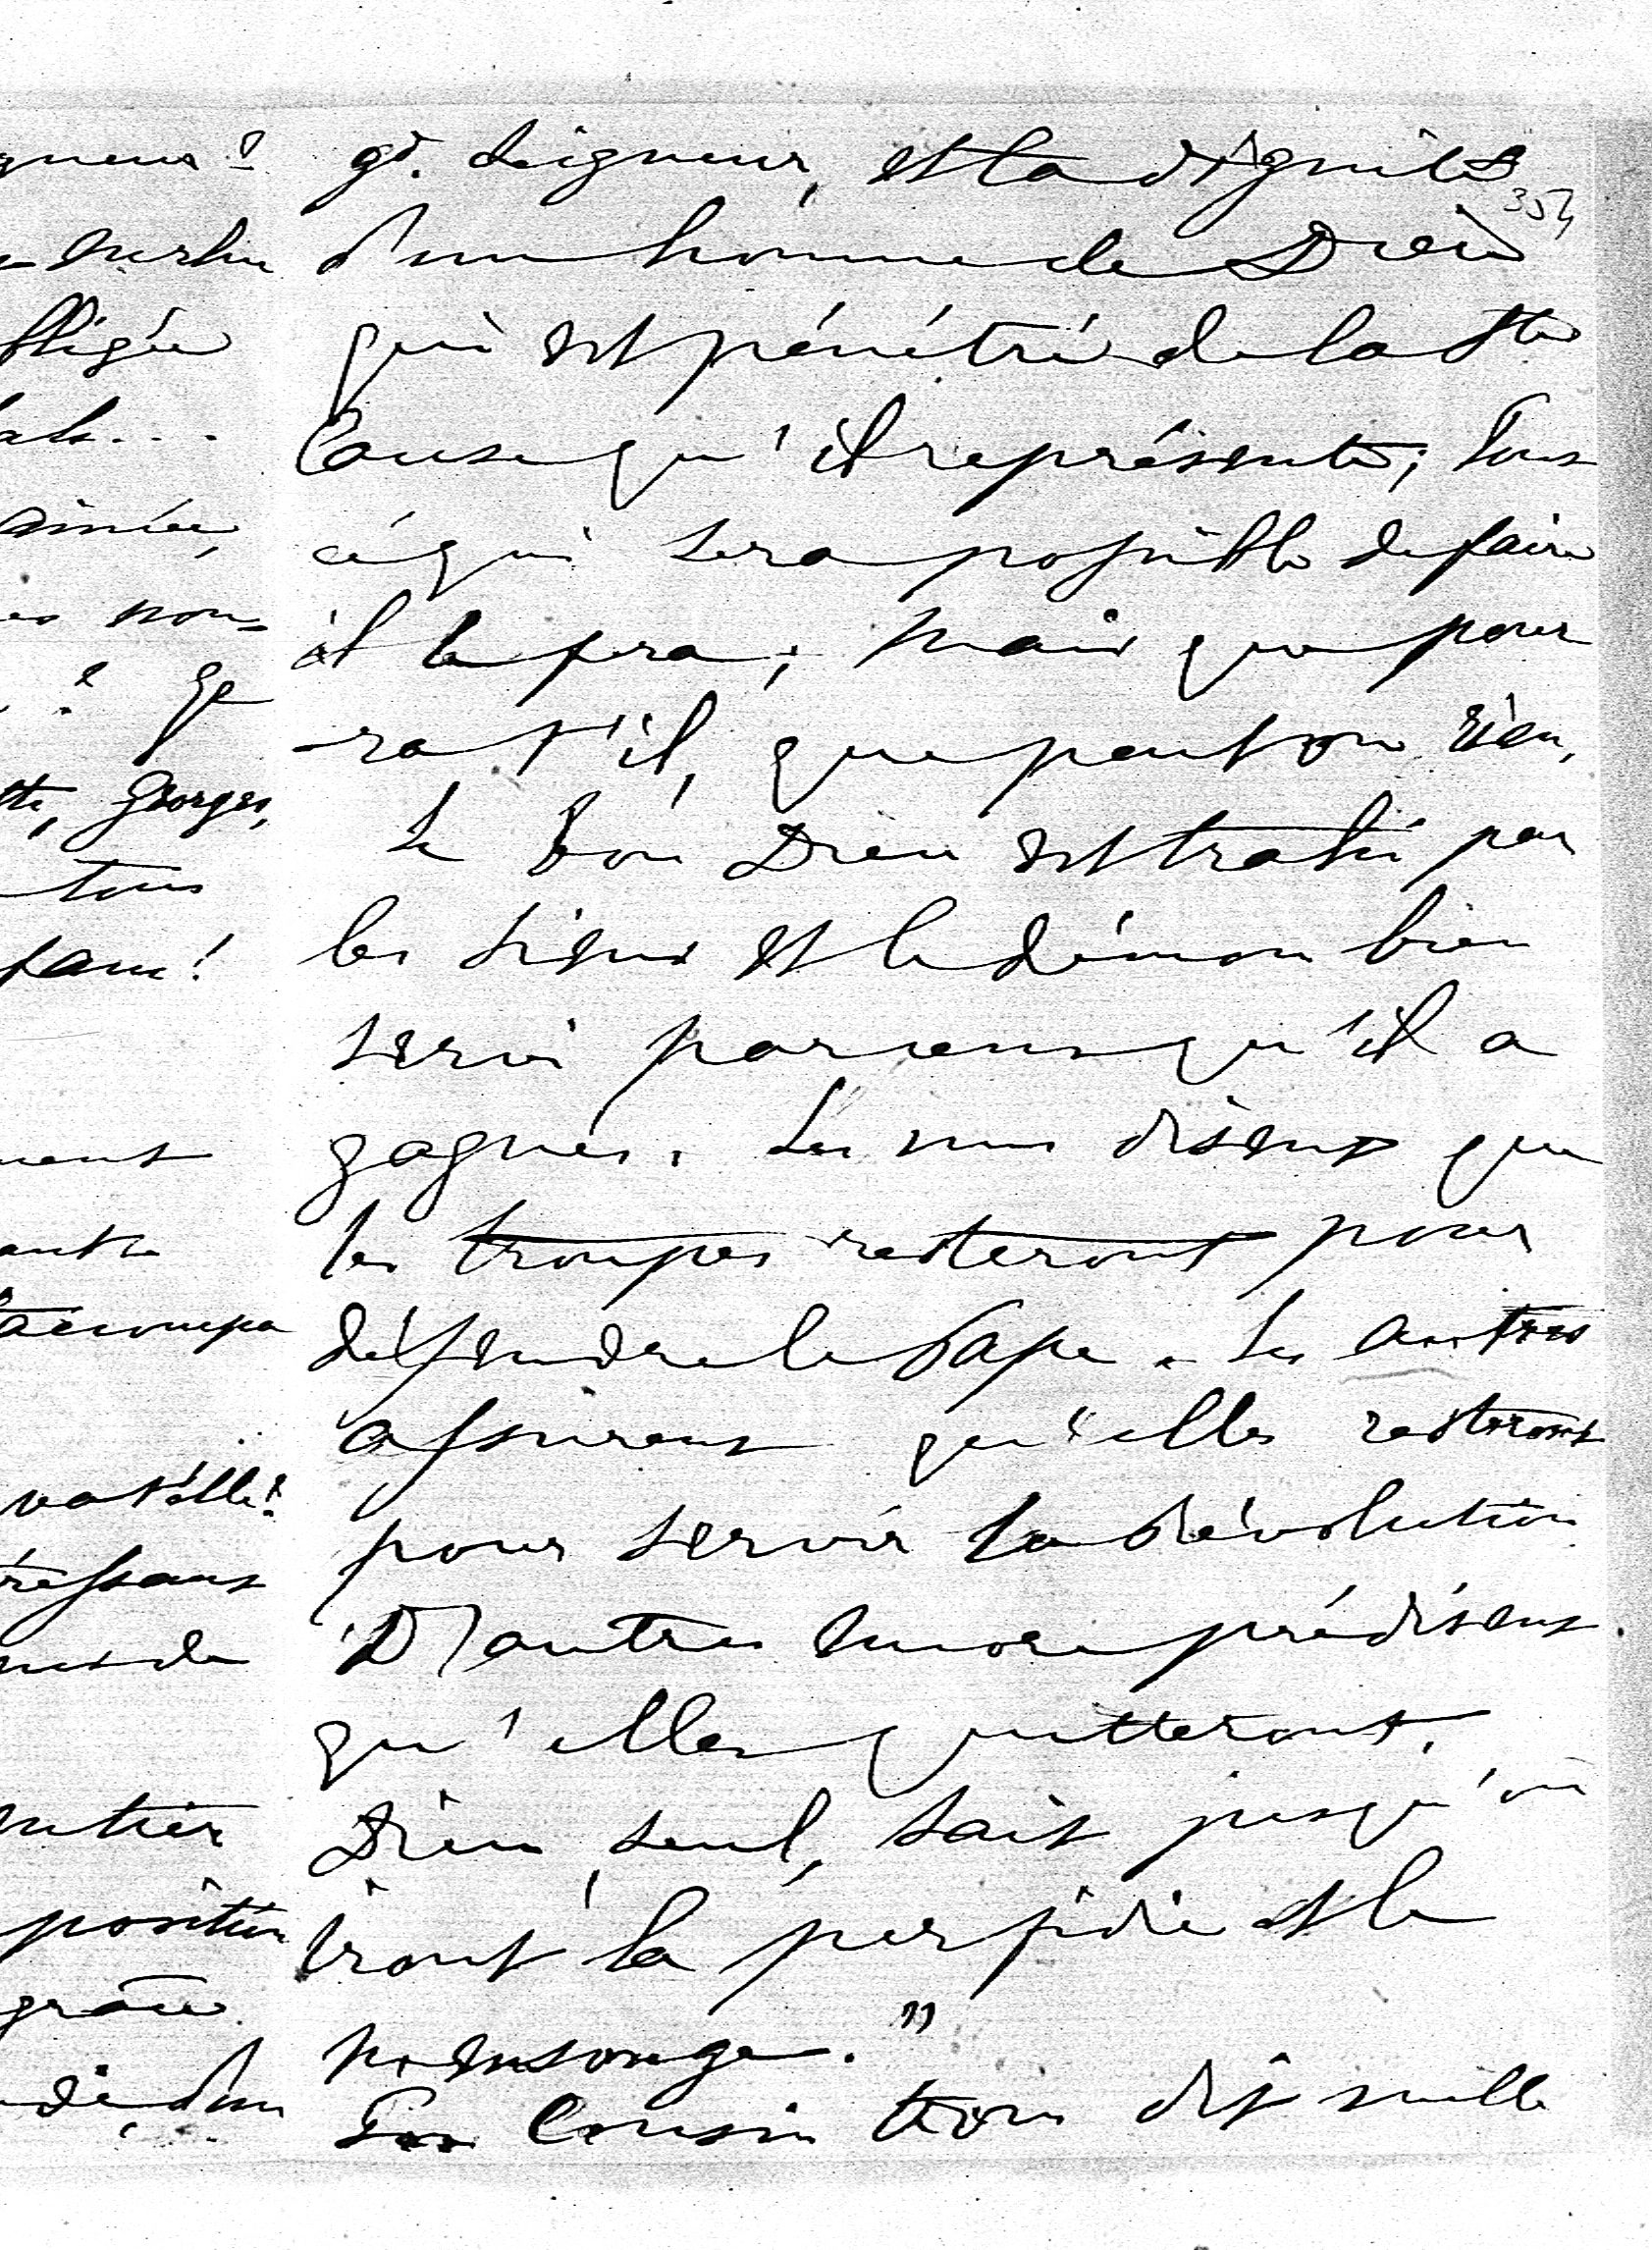 gd. Seigneur, et la dignité
354
d'un homme de Dieu
qui est pénétré de la Ste
Cause qu'il représente; tous
ce qui sera possible de faire
il le fera; Mais que pour
-ra t'il, que peut on rien,
Le bon Dieu est trahi par
les siens et le démon bien
servi par ceux qu'il a
gagnés. Les uns disent que
les troupes resteront pour
défendre le Pape. Les autres
assurent qu'elles resteront
pour servir la Révolution
D'autres encore prédisent
qu'elles quitteront.
Dieu, seul, sait jusqu'où
iront la perfidie et le
mensonge."
Cousin Léon dit mille
gneur?
ffligée
als...
aimée,
es nous
? Je
tte, Georges,
tous
faux!
ment
entre
accompa
va t'elle?
éressant
mes de
entier
position
grâce
d'un